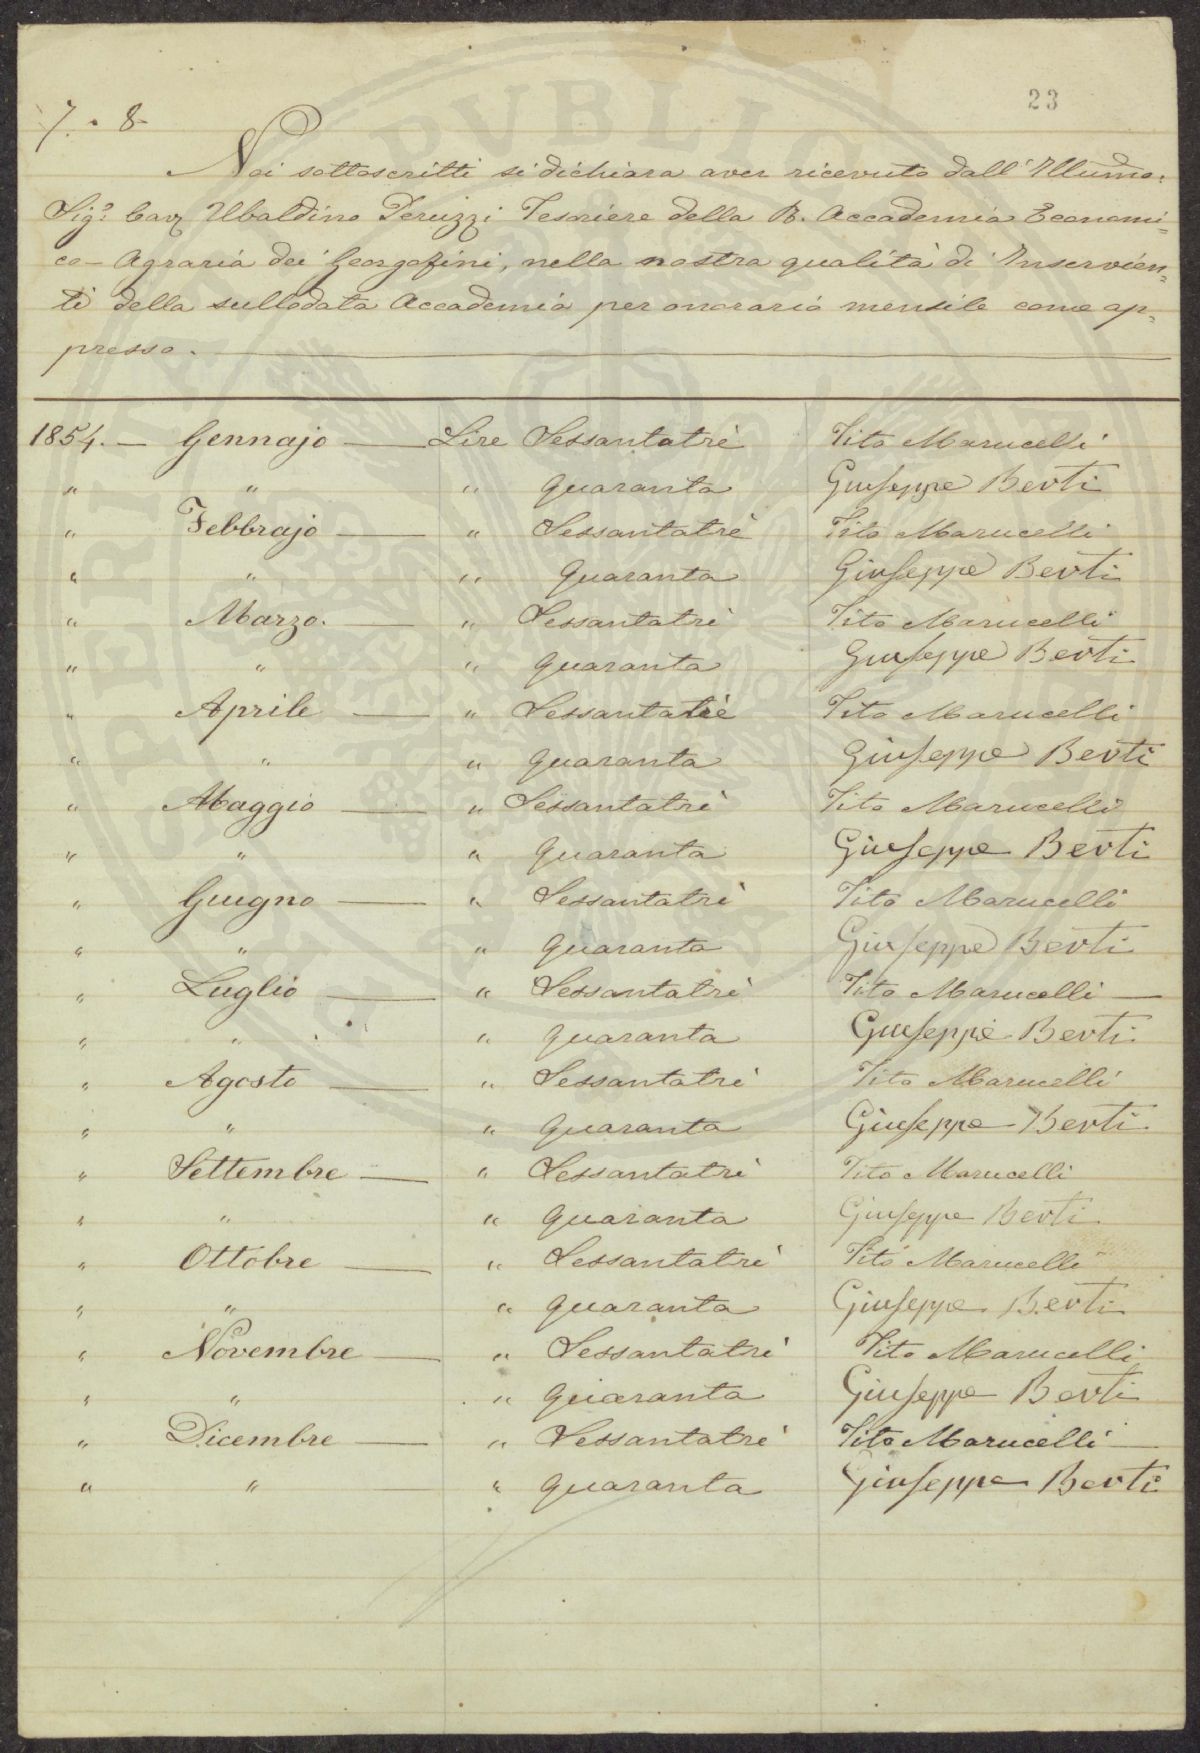 23
7. • 8.
Noi sottoscritti si dichiara aver ricevuto dall' Illumo:
Sigr. Cav Ubaldino Peruzzi Tesoriere della R. Accademia Economi=
co- Agraria dei Georgofini, nella nostra qualità di Inservien=
ti della sullodata Accademia per onorario mensile come ap=
presso.
1854. — Gennajo — Lire Sessantatrè Tito Marucelli
" " " Quaranta Giuseppe Berti
" Febbrajo — " Sessantatrè Tito Marucelli
" " " Quaranta Giuseppe Berti
" Marzo. — " Sessantatrè Tito Marucelli
" " " Quaranta Giuseppe Berti
" Aprile — " Sessantatrè Tito Marucelli
" " " Quaranta Giuseppe Berti
" Maggio — " Sessantatrè Tito Marucelli
" " " Quaranta Giuseppe Berti
" Giugno — " Sessantatrè Tito Marucelli
" " " Quaranta Giuseppe Berti
" Luglio — " Sessantatrè Tito Marucelli —
" " " Quaranta Giuseppe Berti
" Agosto — " Sessantatrè Tito Marucelli
" " " Quaranta Giuseppe Berti
" Settembre — " Sessantatrè Tito Marucelli
" " " Quaranta Giuseppe Berti
" Ottobre — " Sessantatrè Tito Marucelli
" " " Quaranta Giuseppe Berti
" Novembre — " Sessantatrè Tito Marucelli
" " " Quaranta Giuseppe Berti
" Dicembre — " Sessantatrè Tito Marucelli —
" " " Quaranta Giuseppe Berti